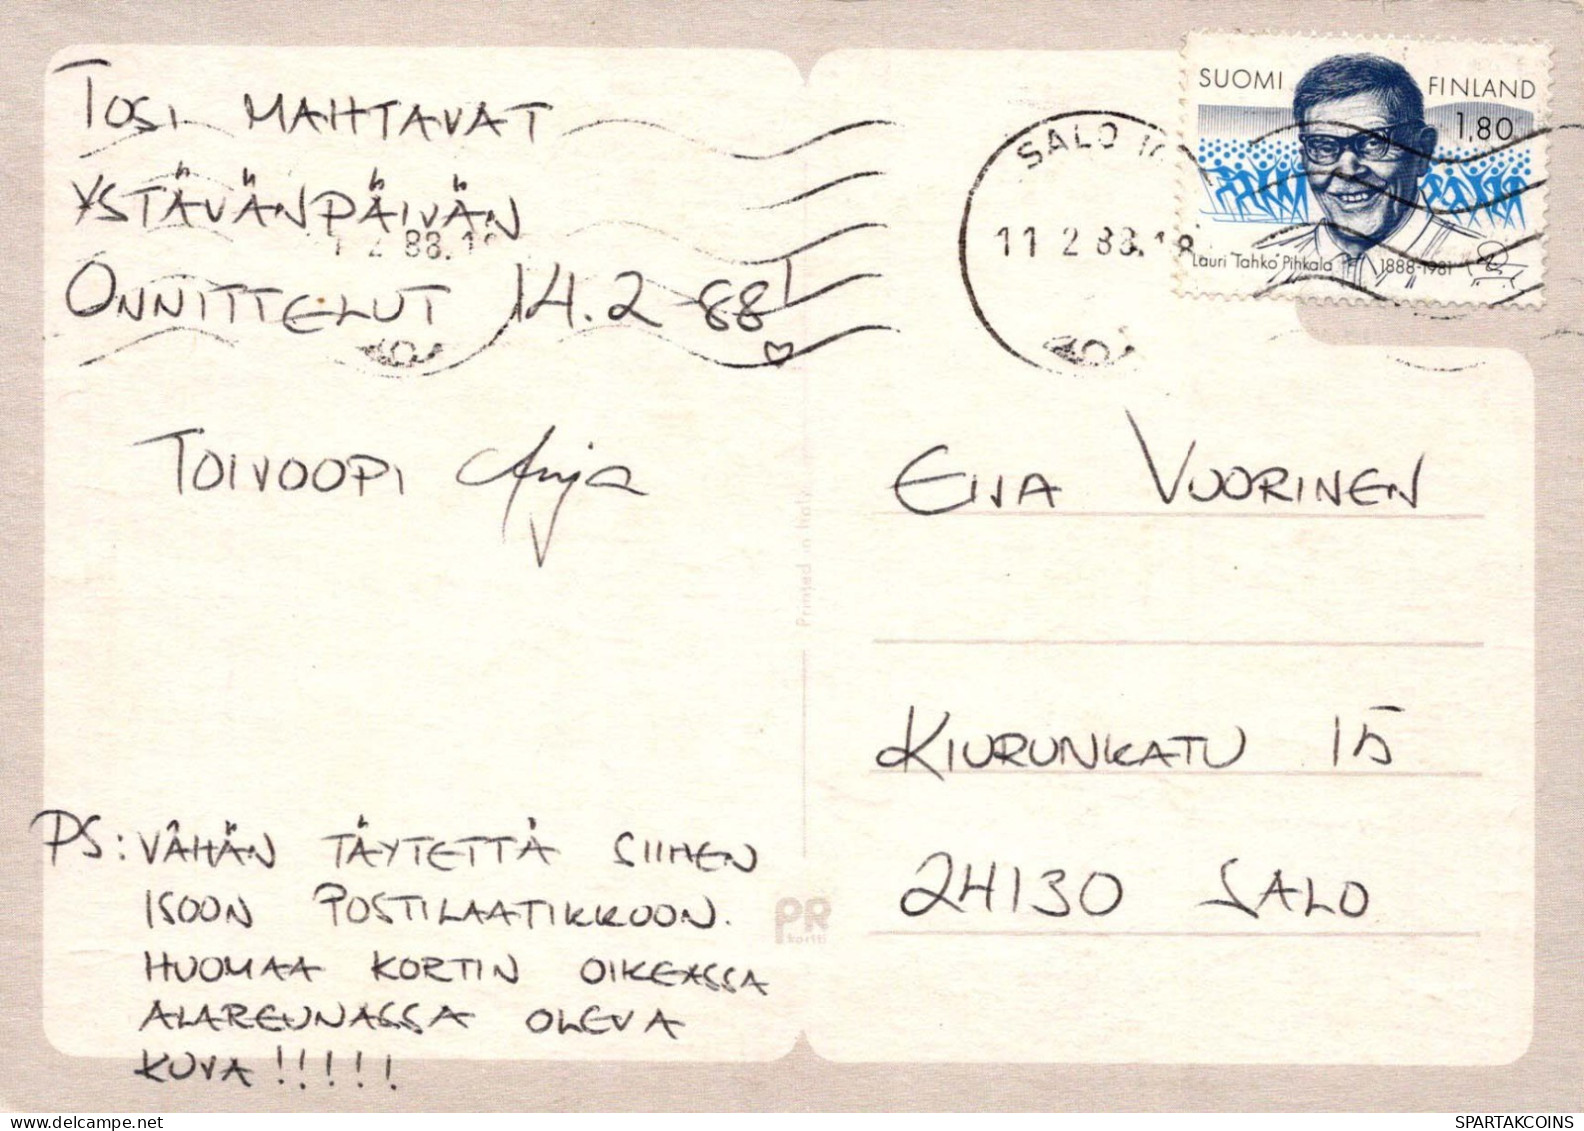 TOSI MAHTAVAT
YSTÄVÄNPÄIVÄN
ONNITTELUT 14.2 88!
TOIVOOPI Anja
PS: VÄHÄN TÄYTETTÄ SIIHEN
ISOON POSTILAATIKKOON.
HUOMAA KORTIN OIKEASSA
ALAREUNASSA OLEVA
KUVA!!!!!
SUOMI FINLAND
1,80
Lauri "Tahko" Pihkala 1888-1981
SALO 10
11 2 88.18
2 88.18
Printed in Italy
PR
kortti
EIJA VUORINEN
KIURUNKATU 15
24130 SALO
SPARTAKCOINS.COM